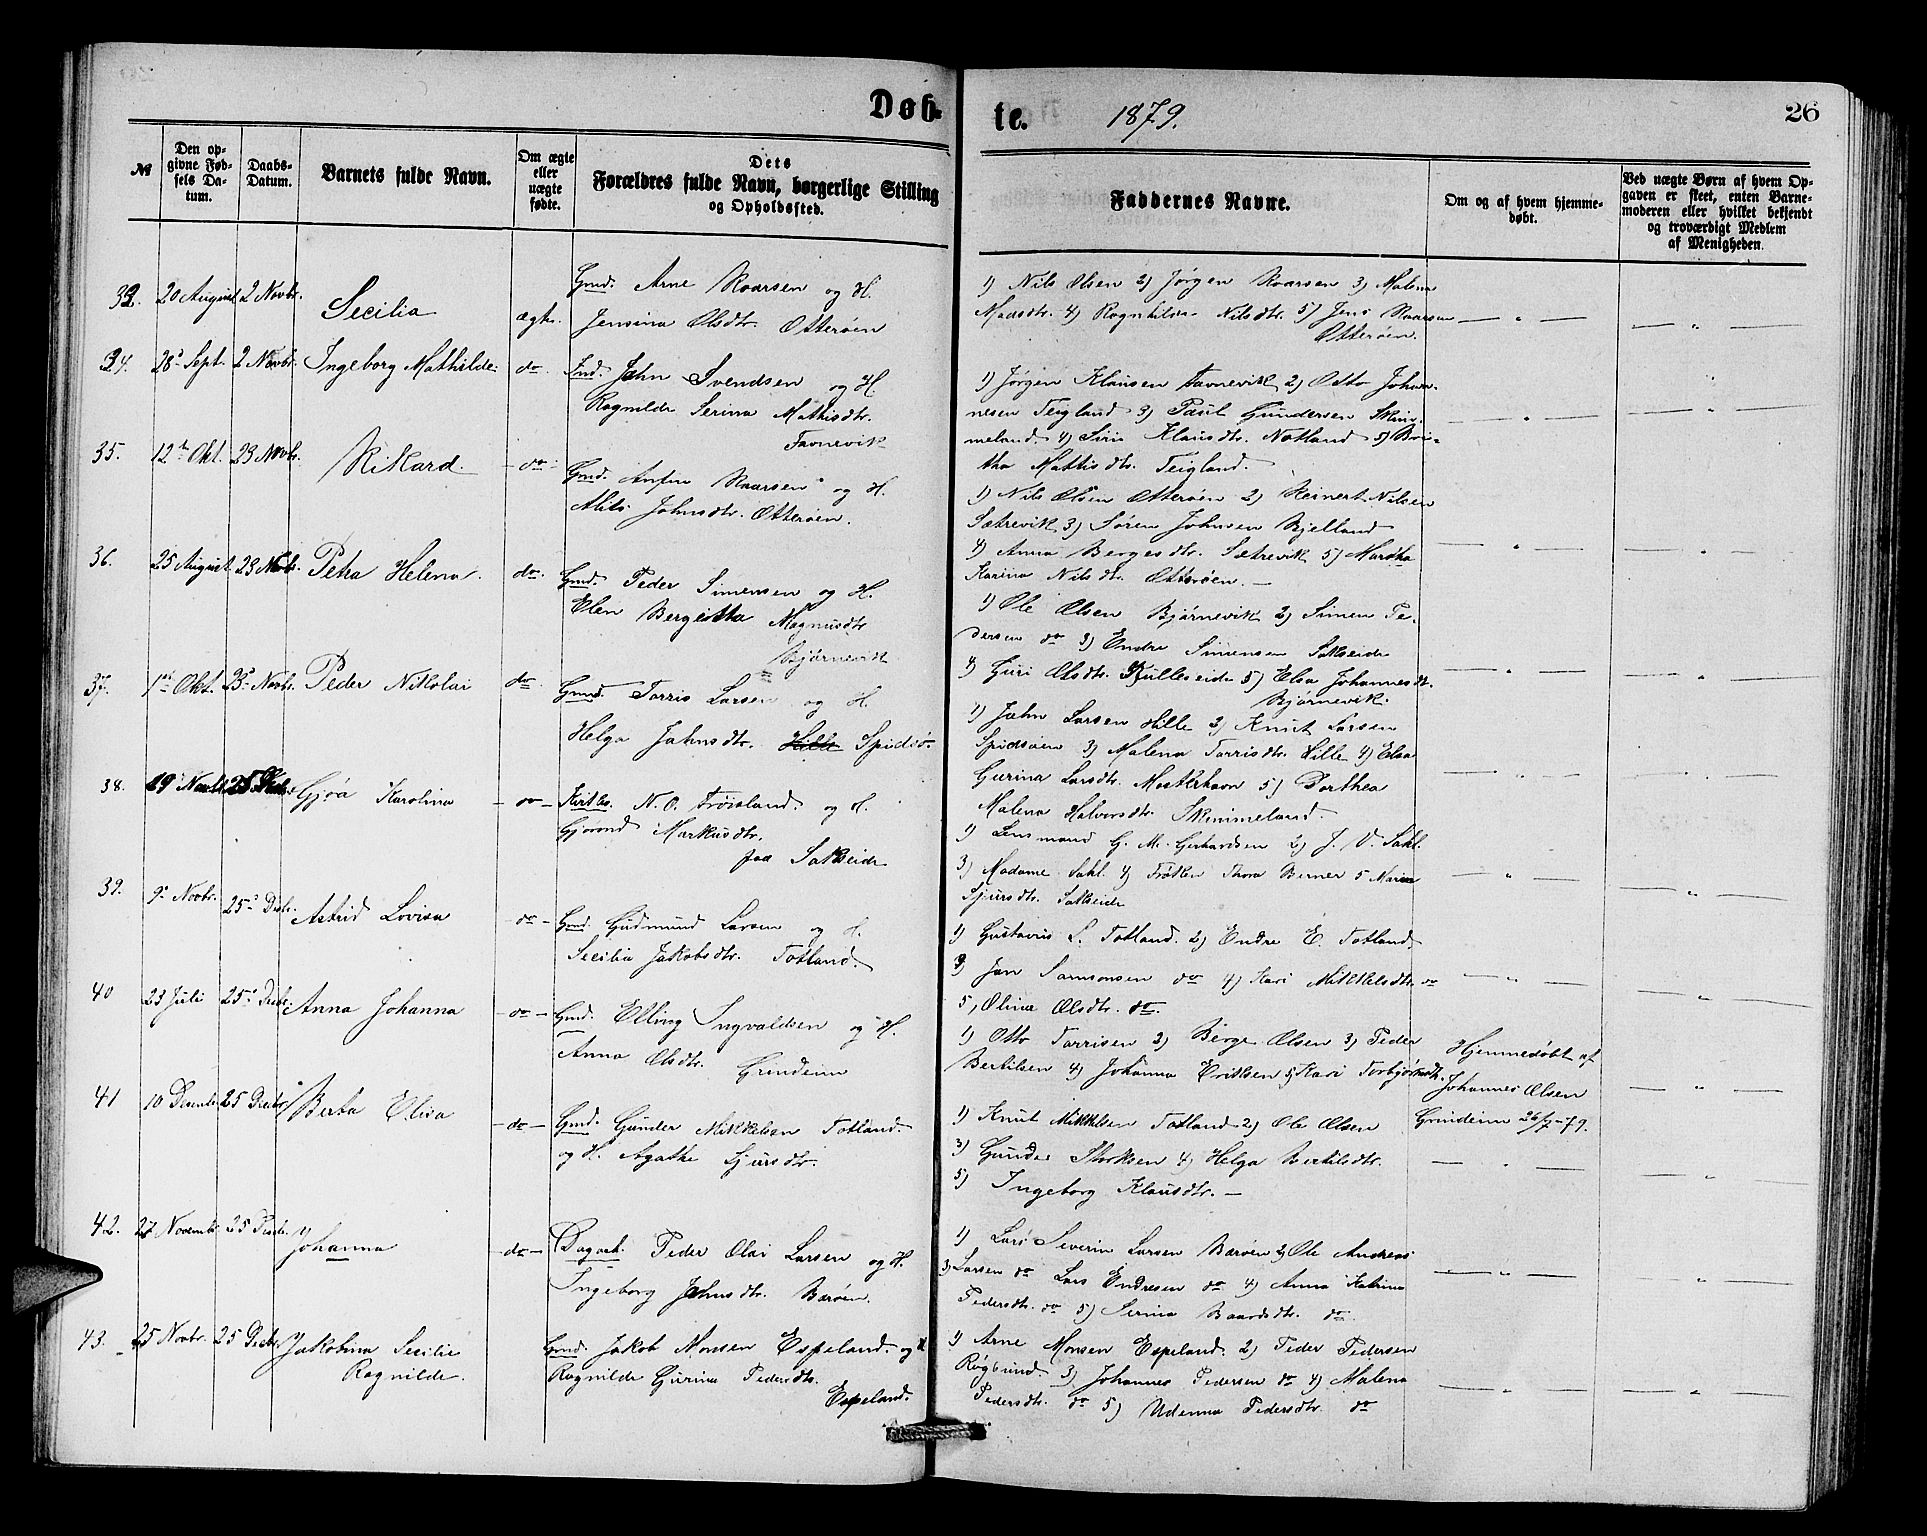 Døb-
te. 1879. 26
№ | Den opgivne Fødsels Datum. | Daabs-Datum. | Barnets fulde Navn. | Om ægte eller uægte fødte. | Dets Forældres fulde Navn, borgerlige Stilling og Opholdssted. | Faddernes Navne. | Om og af hvem hjemmedøbt. | Ved uægte Børn af hvem Opgaven er skeet, enten Barnemoderen eller hvilket bekjendt og troværdigt Medlem af Menigheden.
33. 20 August 2 Novbr. Secilia ægte.
Gmd. Arne Roarsen og H.
Jensina Olsdtr. Otterøen
1) Nils Olsen 2) Jørgen Roarsen 3) Malena
Madsdtr. 4) Ragnhilda Nilsdtr. 5) Jens Roarsen
Otterøen.
34. 28 Sept. 2 Novbr. Ingeborg Mathilde do.
Ind. John Svendsen og H
Ragnilde Serina Mathisdtr.
Favnevik
1) Jørgen Klausen Favnevik 2) Otto Johan-
nesen Teigland 3) Paul Gundersen Skim-
meland 4) Siri Klausdtr. Notland 5) Bri-
tha Mattisdtr. Teigland.
35. 12te Okt. 23 Novbr. Rikard. do
Gmd. Anfin Roarsen og H.
Alis Johnsdtr. Otterøen.
1) Nils Olsen Otterøen 2) Reinert Nilsen
Sætrevik 3) Søren Johnsen Kjelland
4) Anna Bergesdtr. Sætrevik 5) Martha
Karina Nilsdtr. Otterøen.
36. 25 August 23 Novbr. Petra Helena. do.
Gmd. Peder Simensen og H.
Elen Bergitta Magnusdtr
Bjørnevik
1) Ole Olsen Bjørnevik 2) Simen Pe-
dersen do 3) Endre Simensen Sakseide
4) Guri Olsdtr. Kulleseide 5) Elsa Johannesdt.
Bjørnevik.
37. 1ste Okt. 23 Novbr. Peder Nikolai do.
Gmd. Torris Larsen og H.
Helga Johnsdtr. Hille Spidsø.
1) John Larsen Hille 2) Knut Larsen
Spidsøen 3) Malena Torrisdtr. Hille 4) Elsa
Gurina Larsdtr. Mosterhavn 5) Dorthea
Malena Halvorsdtr. Skimmeland.
38. 19 Novbr 25 Decbr. Gjøa Karolina do
Kirkes. N. O. Frøisland og H.
Gjørond Markusdtr.
paa Sakseide
1) Lensmand G. M. Gerhardsen 2) J. V. Sahl
3) Madame Sahl 4) Frøken Thora Berner 5 Maria
Sjursdtr. Sakseide
39. 9. Novbr. 25 Decbr. Astrid Lovisa do
Gmd. Gudmund Larsen og H.
Secilia Jakobsdtr. Totland.
1) Gustavus L. Totland. 2) Endre E. Totland
3) Jan Samsonsen do 4) Kari Mikkelsdtr. do
5, Olina Olsdtr. do.
40 23 Juli 25 Decbr. Anna Johanna do
Gmd. Elling Ingvaldsen og H.
Anna Olsdtr. Grindeim
1) Otto Torrisen 2) Berge Olsen 3) Peder
Bertilsen 4) Johanna Eriksen 5 Kari Torbjørnsdtr.
Hjemmedøbt af
Johannes Olsen
Grindeim 26/7-79.
41 10 Decembr 25 Decbr. Berta Elisa do
Gmd. Gunder Mikkelsen Totland.
og H. Agathe Sjursdtr.
1) Knut Mikkelsen Totland 2) Ole Olsen
3) Gunder Storksen 4) Helga Bertilsdtr.
5) Ingeborg Klausdtr.
42. 27 Novembr. 25 Decbr. Johanna do
Dagarb. Peder Olai Larsen og H.
Ingeborg Johnsdtr. Barøen.
1) Lars Severin Larsen Barøen 2) Ole Andreas
Larsen do 3) Lars Endresen do 4) Anna Katrina
Pedersdtr. do 5) Serina Baardsdtr. do.
43. 25 Novbr. 25 Decbr. Jakobina Secilie
Ragnilde.
Gmd. Jakob Monsen Espeland. og H
Ragnilde Gurina Pedersdtr.
Espeland.
1) Arne Monsen Espeland. 2) Peder Pedersen
Røgsund. 3) Johannes Pedersen do 4) Malena
Pedersdtr. do 5) Udenna Pedersdtr. do